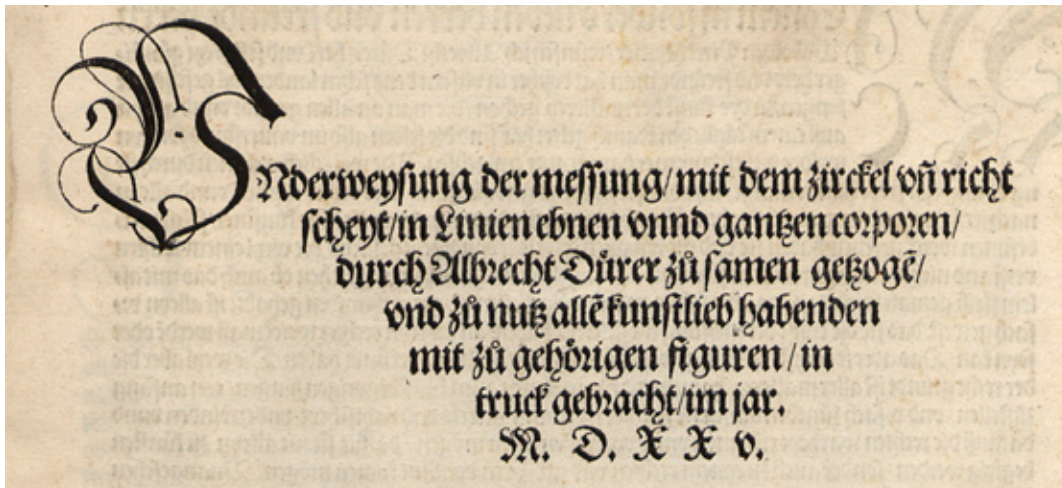 VNderweysung der messung/ mit dem zirckel vñ richt
scheyt/ in Linien ebnen vnnd gantzen corporen/
durch Albrecht Dürer zů samen getzogẽ/
vnd zů nutz allẽ kunstlieb habenden
mit zů gehörigen figuren/ in
truck gebracht/ im jar.
M. D. X X v.